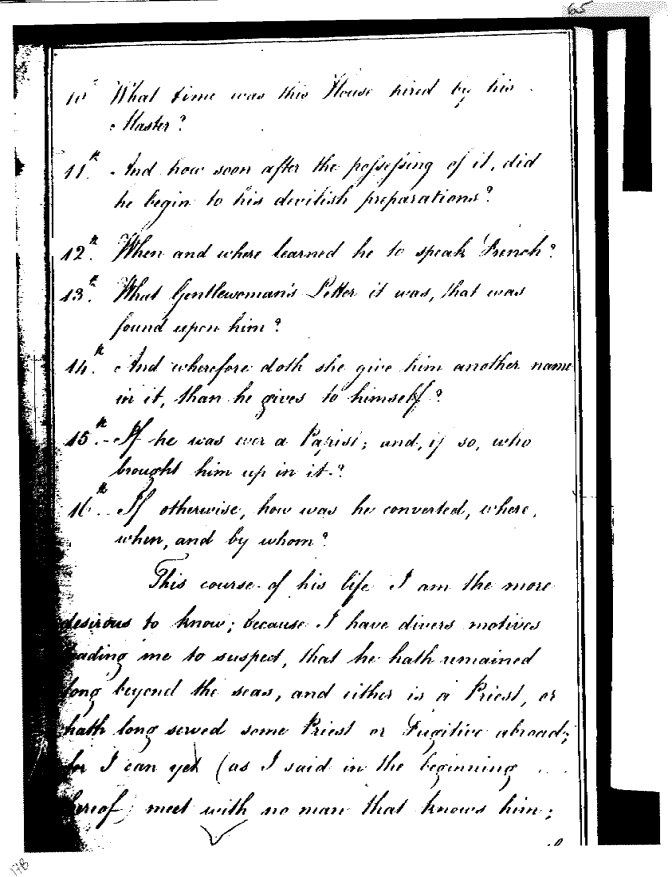 65
10th What time was this House hired by his
Master?
11th And how soon after the possessing of it, did
he begin to his devilish preparations?
12th When and where learned he to speak French?
13th What Gentlewoman's Letter it was, that was
found upon him?
14th And wherefore doth she give him another name
in it, than he gives to himself?
15th If he was ever a Papist; and, if so, who
brought him up in it?
16th If otherwise, how was he converted, where,
when, and by whom?
This course of his life I am the more
desirous to know; because I have divers motives
leading me to suspect, that he hath remained
long beyond the seas, and either is a Priest, or
hath long served some Priest or Fugitive abroad;
for I can yet (as I said in the beginning
hereof) meet with no man that knows him;